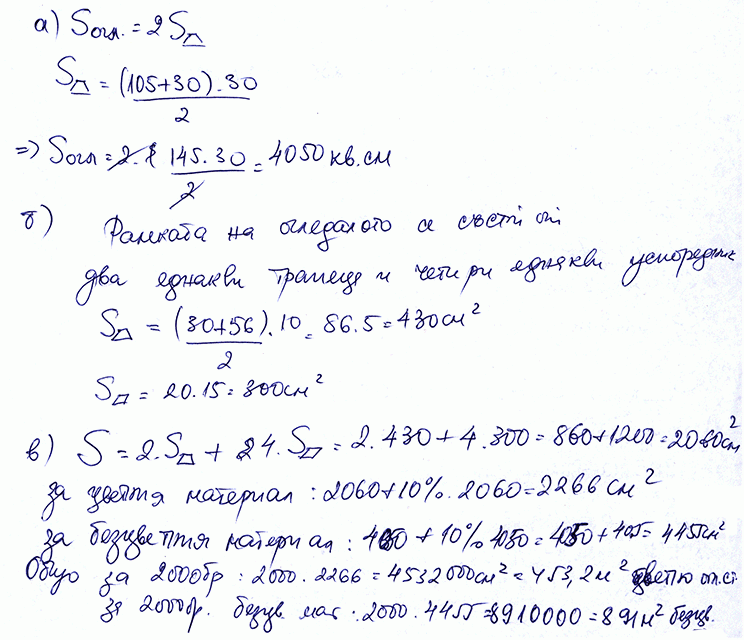 а) Sогл. = 2S⏢
S⏢ = (105+30).30 / 2
=> Sогл = 2. 145.30 / 2 = 4050 кв.см
б) Рамката на огледалото се състои от
два еднакви трапеца и четири еднакви успоредник
S⏢ = (30+56).10 / 2 = 86.5 = 430 см²
S▱ = 20.15 = 300 см²
в) S = 2.S⏢ + 4.S▱ = 2.430 + 4.300 = 860+1200 = 2060 см²
за цветния материал : 2060+10%.2060 = 2266 см²
за безцветния материал : 4050 + 10% 4050 = 4050 + 405 = 4455 см²
Общо за 2000бр : 2000.2266 = 4532000см² = 453,2 м²
за 2000бр. безцв. мат. 2000.4455 = 8910000 = 891 м² безцв.